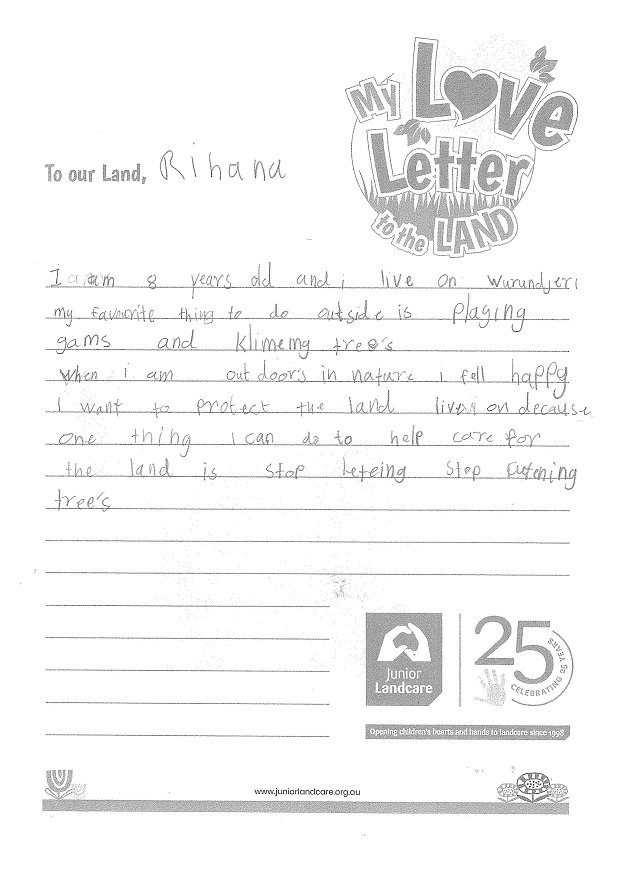 My Love
Letter
to the LAND
To our Land, Rihana
I am 8 years old and i live on Wurundjeri
my favourite thing to do outside is playing
gams and klimemg tree's
When i am outdoors in nature i fell happy
I want to protect the land lives on decause
one thing i can do to help care for
the land is stop leteing stop cutening
tree's
Junior
Landcare
25
CELEBRATING 25 YEARS
Opening children's hearts and hands to landcare since 1998
www.juniorlandcare.org.au